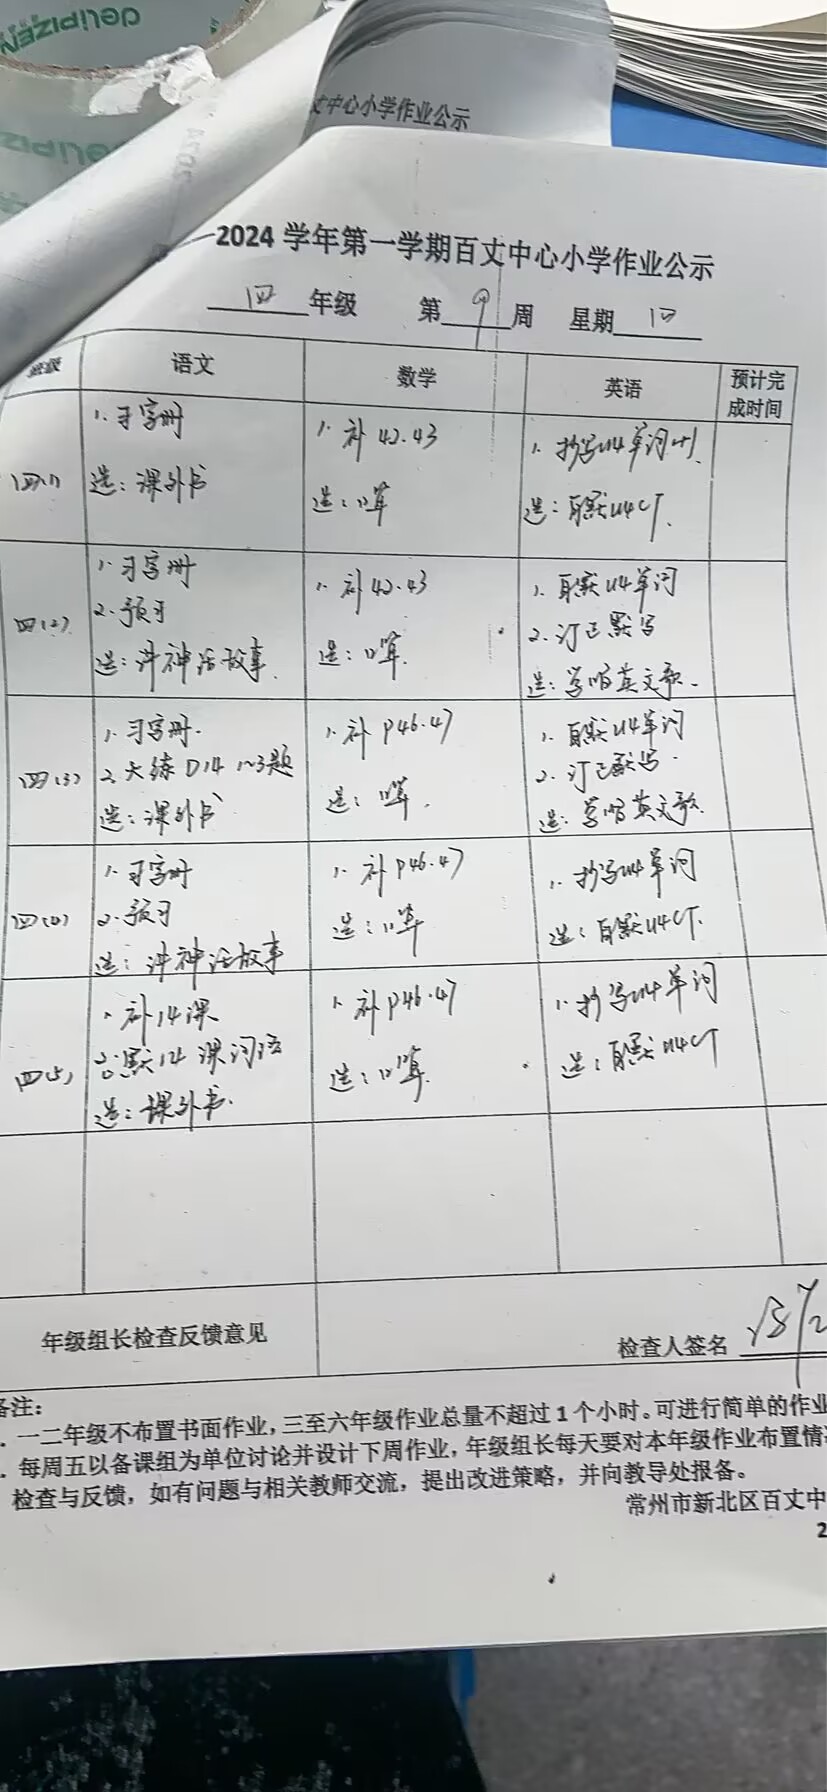 delipizen
丈中心小学作业公示
2024 学年第一学期百丈中心小学作业公示
四 年级 第 9 周 星期 四
班级 语文 数学 英语 预计完
成时间
四(1)
1. 习字册
选: 课外书
1. 补 42.43
选: 口算
1. 抄写U4单词
选: 自默U4CT.
四(2)
1. 习字册
2. 预习
选: 讲神话故事.
1. 补 42.43
选: 口算.
1. 自默U4单词
2. 订正默写
选: 学唱英文歌.
四(3)
1. 习字册.
2. 大练 D14 1~3题
选: 课外书
1. 补 P46.47
选: 口算.
1. 自默U4单词
2. 订正默写.
选: 学唱英文歌.
四(4)
1. 习字册
2. 预习
选: 讲神话故事
1. 补P46.47
选: 口算
1. 抄写U4单词
选: 自默U4CT.
四(5)
1. 补14课
2. 默14课词语
选: 课外书.
1. 补P46.47
选: 口算.
1. 抄写U4单词
选: 自默U4CT
年级组长检查反馈意见
检查人签名
备注:
. 一二年级不布置书面作业,三至六年级作业总量不超过 1 个小时。可进行简单的作业
. 每周五以备课组为单位讨论并设计下周作业,年级组长每天要对本年级作业布置情
检查与反馈,如有问题与相关教师交流,提出改进策略,并向教导处报备。
常州市新北区百丈中
2